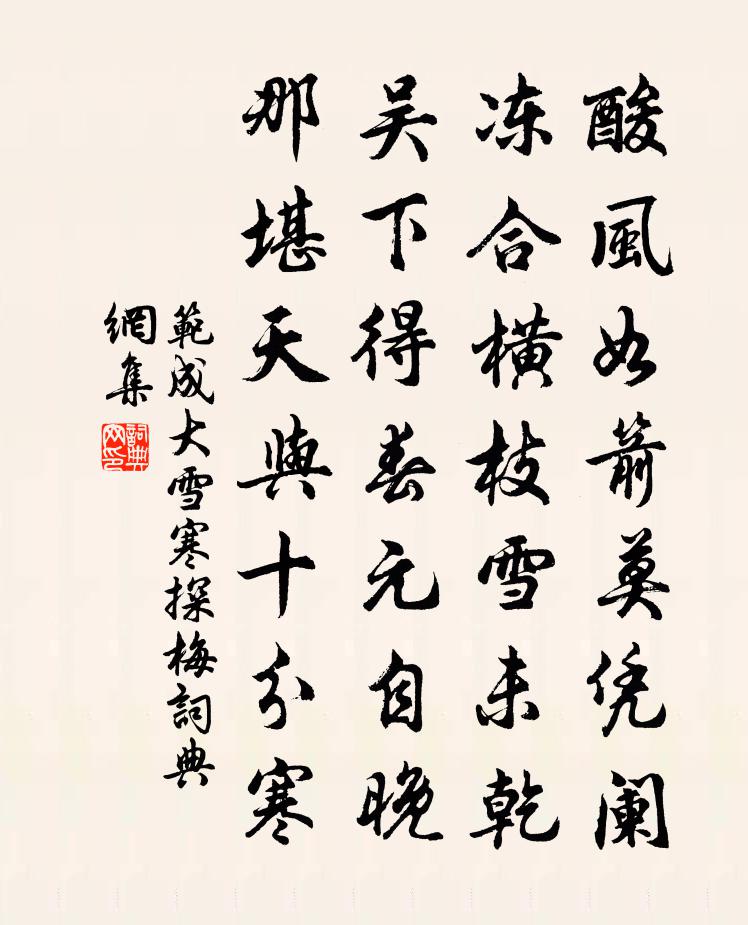 酸風如箭莫凭阑
冻合橫枝雪未乾
吴下得春元自晚
那堪天與十分寒
範成大雪寒探梅詞典
網集
詞典
网印